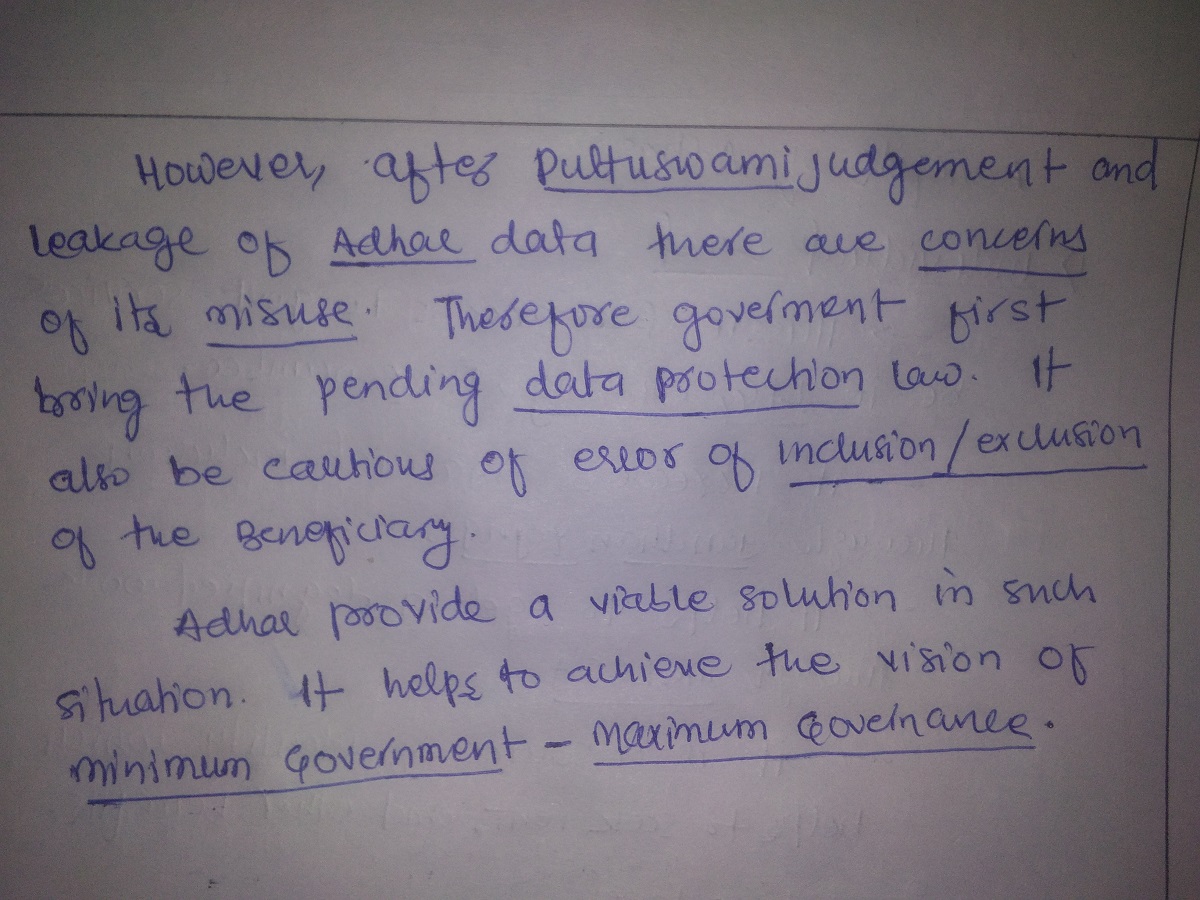 However, after Puttuswami judgement and
leakage of Adhar data there are concerns
of its misuse. Therefore goverment first
bring the pending data protection law. It
also be cautious of error of inclusion/exclusion
of the Beneficiary.
Adhar provide a viable solution in such
situation. It helps to achieve the vision of
minimum Government - Maximum Governance.